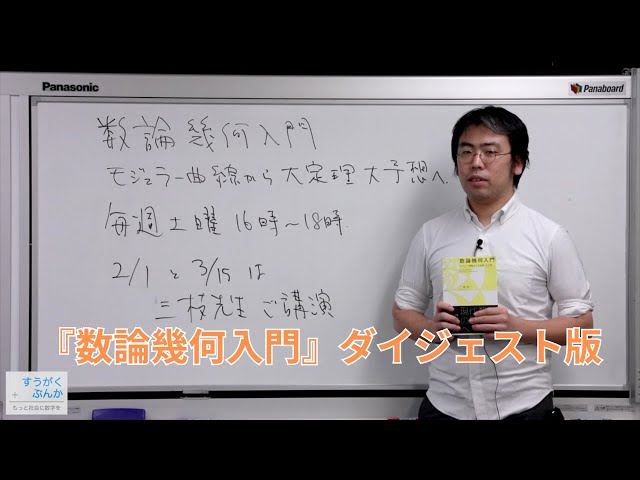 Panasonic
Panaboard
数論幾何入門
モジュラー曲線から大定理大予想へ.
毎週土曜 16時~18時.
2/1 と 3/15 は
三枝先生 ご講演
数論幾何入門
『数論幾何入門』ダイジェスト版
すうがく
+ ぶんか
もっと社会に数学を